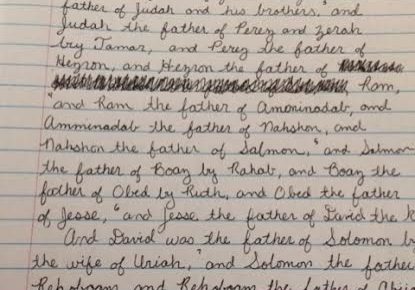 father of Judah and his brothers, ³and
Judah the father of Perez and Zerah
by Tamar, and Perez the father of
Hezron, and Hezron the father of
Ram,
⁴and Ram the father of Amminadab, and
Amminadab the father of Nahshon, and
Nahshon the father of Salmon, ⁵and Salmon
the father of Boaz by Rahab, and Boaz the
father of Obed by Ruth, and Obed the father
of Jesse, ⁶and Jesse the father of David the k
And David was the father of Solomon b
the wife of Uriah, ⁷and Solomon the father
Rehoboam, and Rehoboam the father of Abij